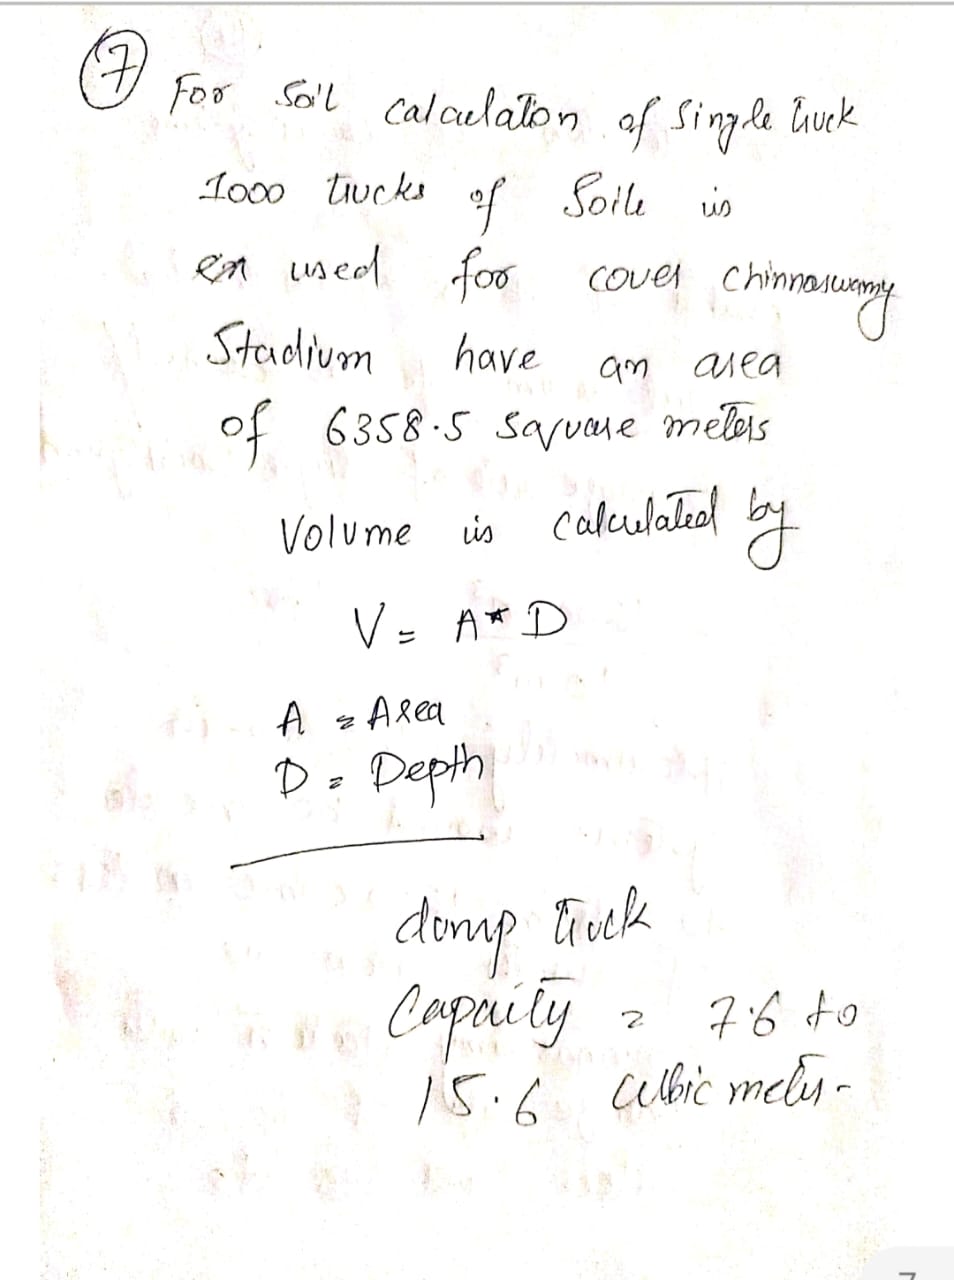 7
For Soil calculation of Single truck
1000 trucks of Soile is
used for cover chinnaswamy
Stadium have an area
of 6358.5 square meters
Volume is calculated by
V = A * D
A = Area
D = Depth
dump truck
Capacity = 7.6 to
15.6 cubic meter-
7